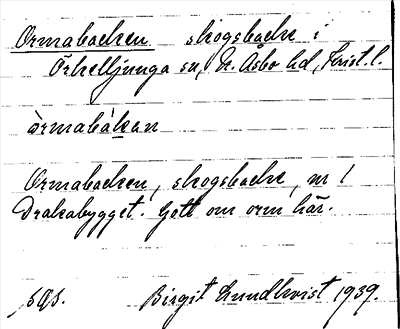 Ormabacken skogsbacke i
Örkelljunga sn, N. Åsbo hd, Krist. l.
òrmabákan
Ormabacken, skogsbacke, m 1
Drakabygget. Gott om orm här.
sgs. Birgit Lundkvist 1939.